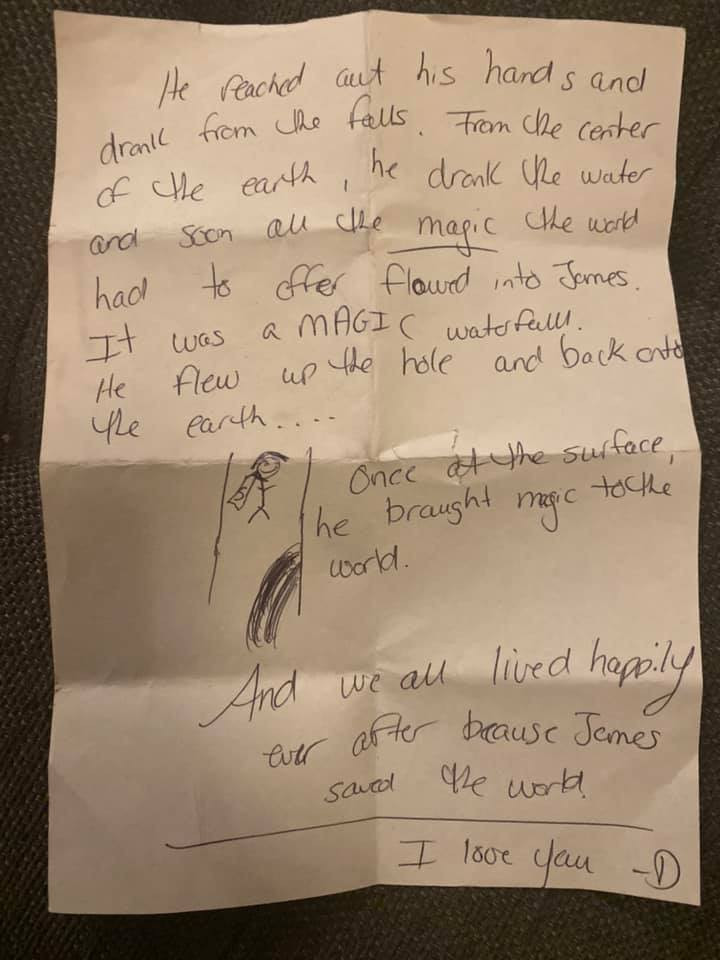 He reached out his hands and
drank from the falls. From the center
of the earth, he drank the water
and soon all the magic the world
had to offer flowed into James.
It was a MAGIC waterfall.
He flew up the hole and back onto
the earth....
Once at the surface,
he brought magic to the
world.
And we all lived happily
ever after because James
saved the world.
I love you -D